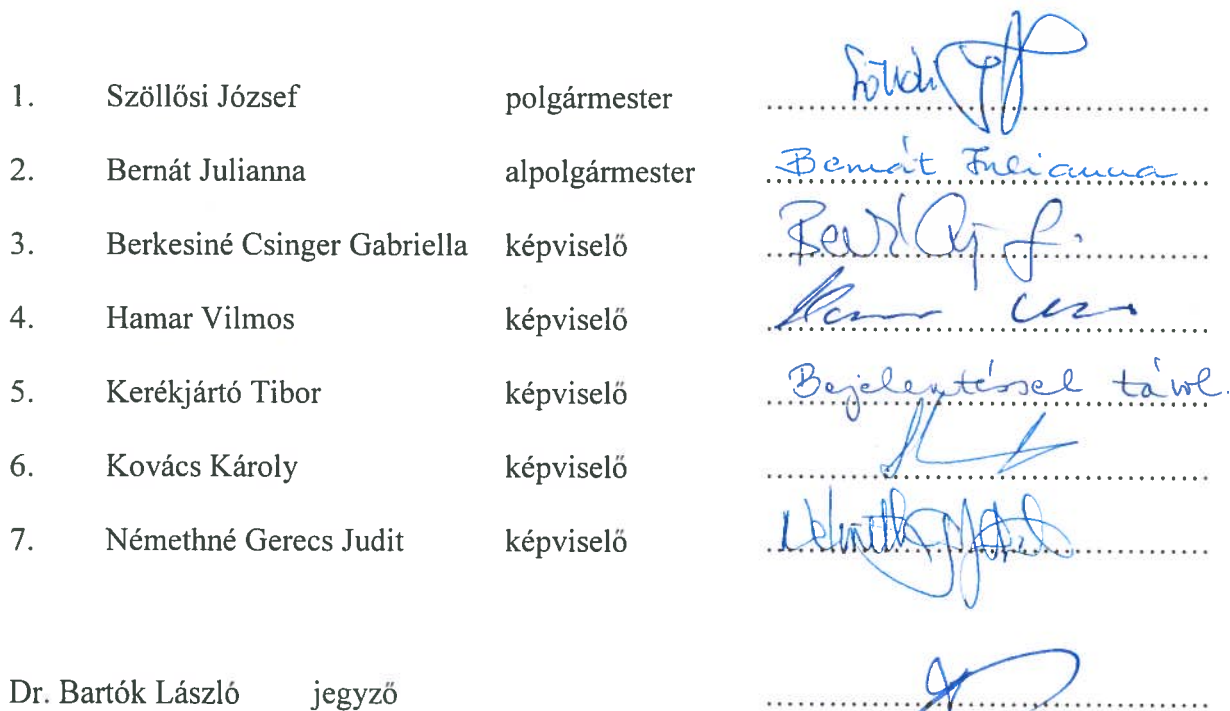 1. Szöllősi József polgármester
2. Bernát Julianna alpolgármester Bernát Julianna
3. Berkesiné Csinger Gabriella képviselő
4. Hamar Vilmos képviselő
5. Kerékjártó Tibor képviselő Bejelentéssel távol.
6. Kovács Károly képviselő
7. Némethné Gerecs Judit képviselő
Dr. Bartók László jegyző